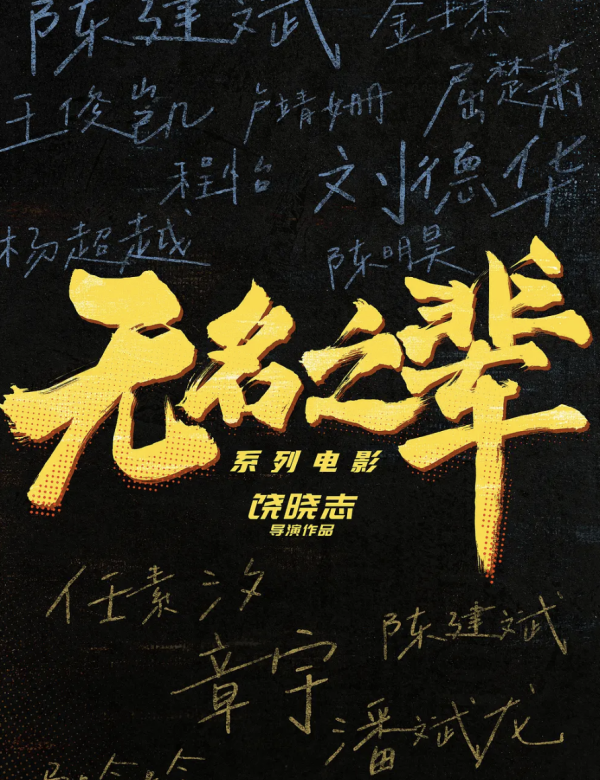 陈建斌 金士杰
王俊凯 卢靖姗 屈楚萧
程怡 刘德华
杨超越 陈明昊
无名之辈
系列电影
饶晓志
导演作品
任素汐
陈建斌
章宇
潘斌龙